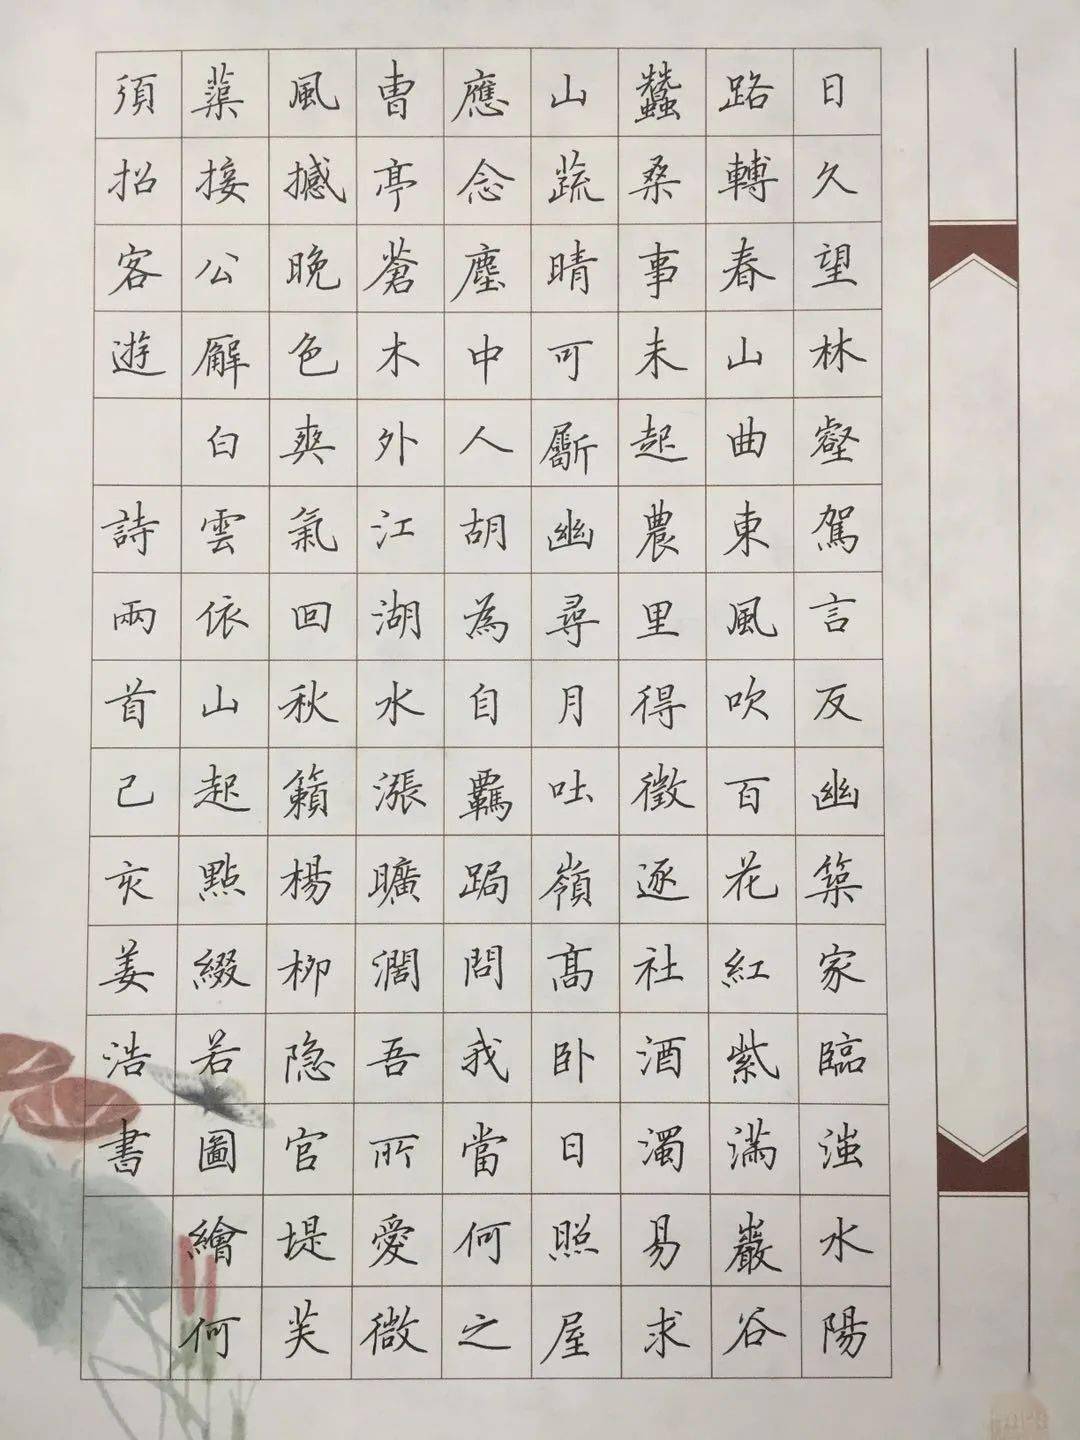 日久望林壑駕言反幽築家臨滍水陽
路轉春山曲東風吹百花紅紫滿巖谷
蠶桑事未起農里得徵逐社酒濁易求
山蔬晴可斸幽尋月吐嶺高卧日照屋
應念塵中人胡為自羈跼問我當何之
曹亭蒼木外江湖水漲曠濶吾所愛微
風撼晚色爽氣回秋籟楊柳隐官堤芙
蕖接公廨白雲依山起點綴若圖繪何
須招客遊 詩兩首己亥姜浩書